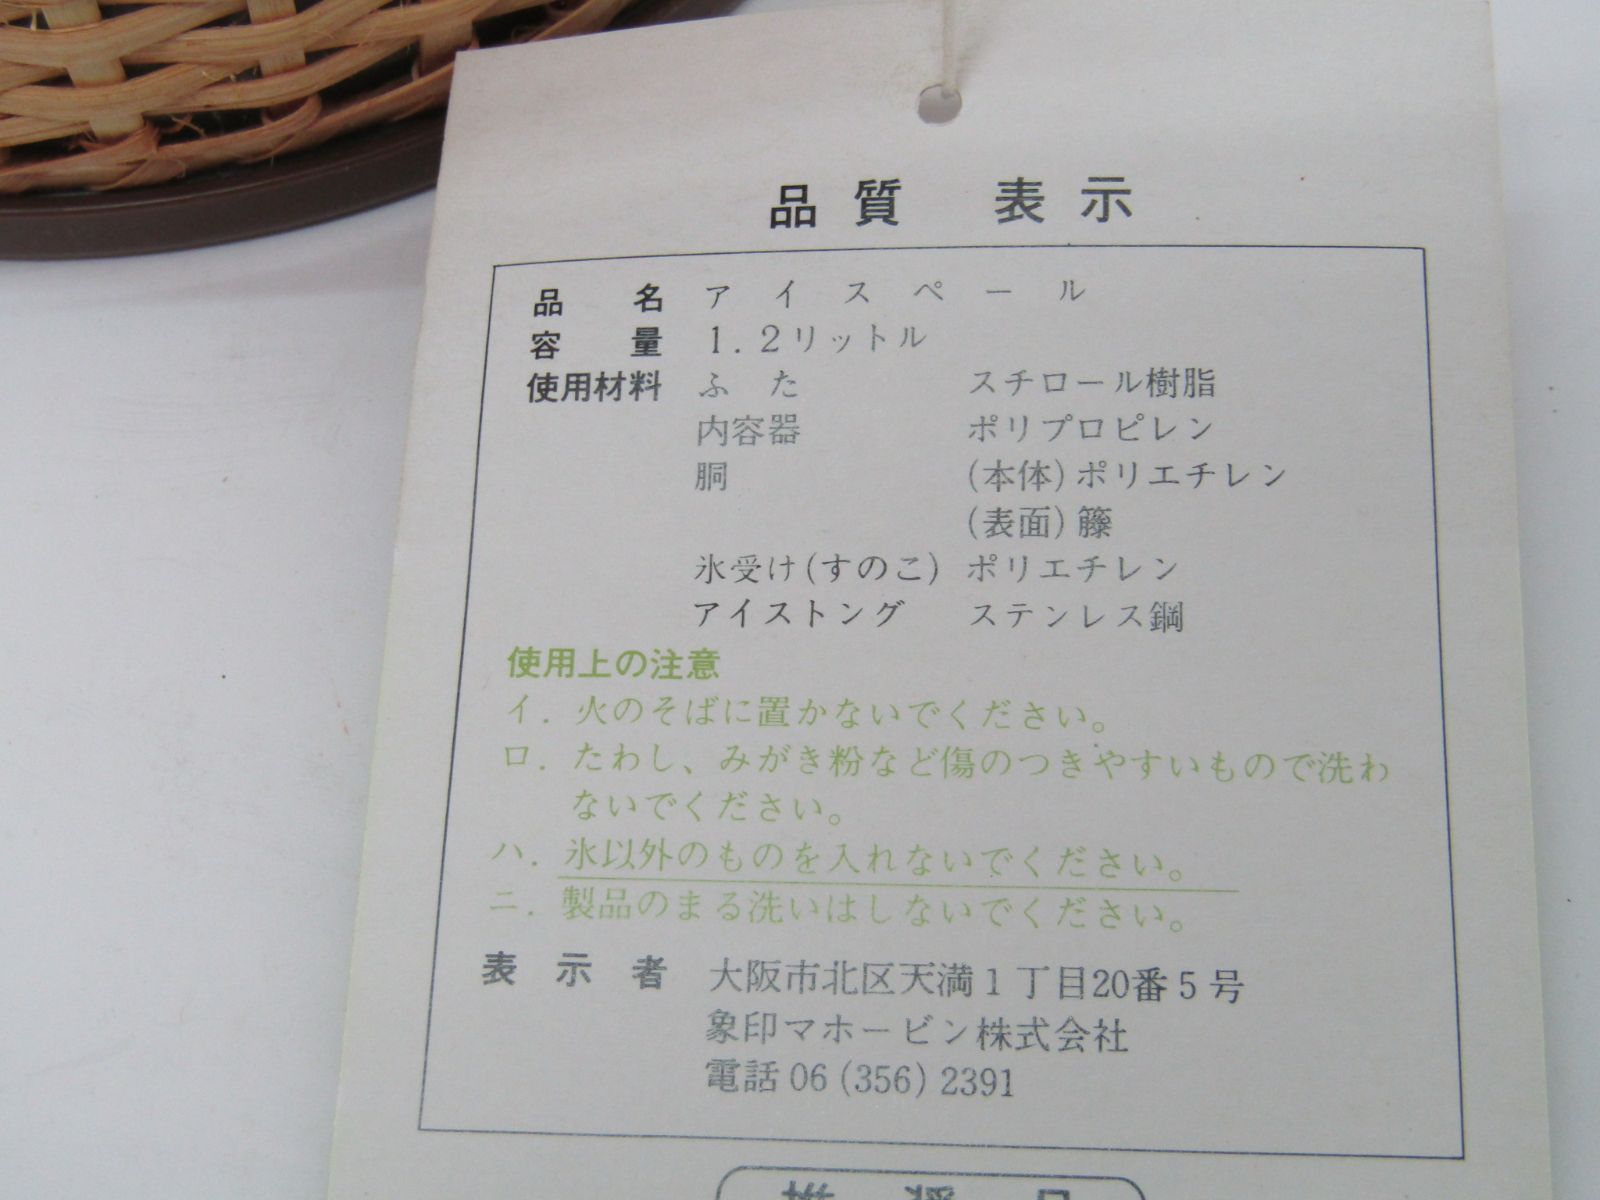 品質 表示
品名 アイスペール
容量 1.2リットル
使用材料 ふた スチロール樹脂
内容器 ポリプロピレン
胴 (本体)ポリエチレン
(表面)籐
氷受け(すのこ) ポリエチレン
アイストング ステンレス鋼
使用上の注意
イ. 火のそばに置かないでください。
ロ. たわし、みがき粉など傷のつきやすいもので洗わ
ないでください。
ハ. 氷以外のものを入れないでください。
ニ. 製品のまる洗いはしないでください。
表示者 大阪市北区天満1丁目20番5号
象印マホービン株式会社
電話06(356)2391